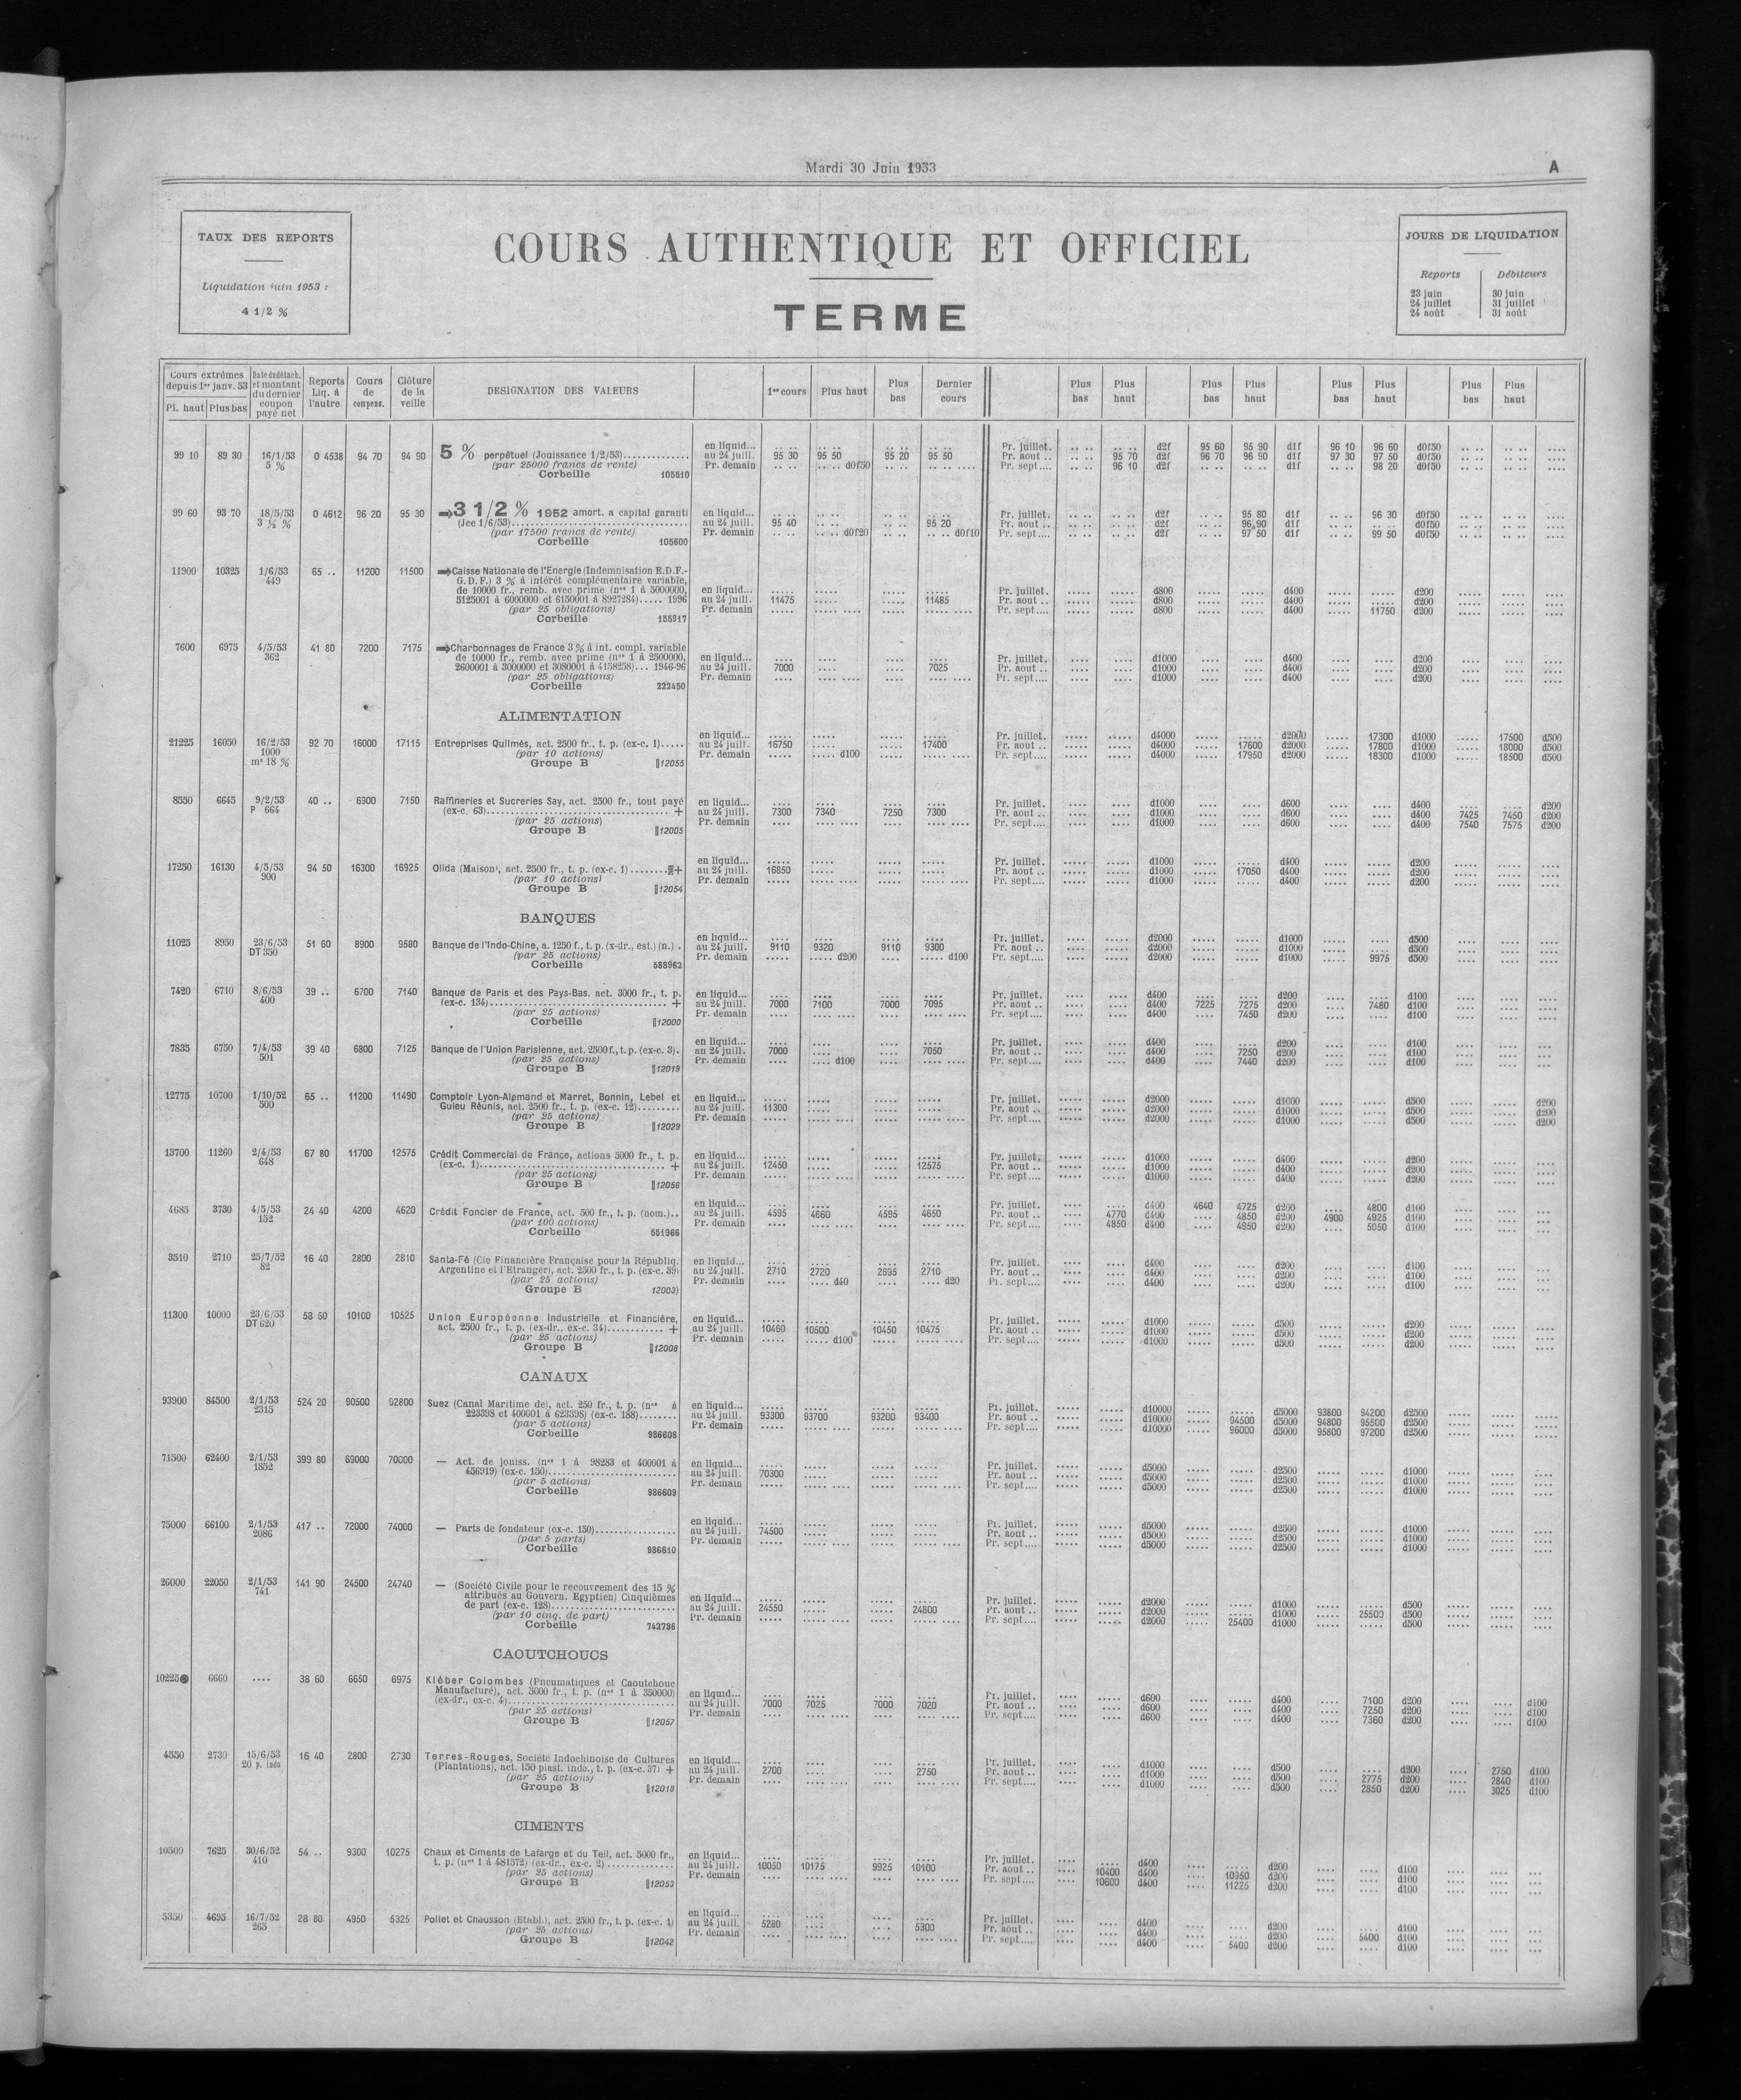 Mardi 30 Juin 1953
A
TAUX DES REPORTS
Liquidation juin 1953 :
4 1/2 %
COURS AUTHENTIQUE ET OFFICIEL
TERME
JOURS DE LIQUIDATION
Reports Débiteurs
23 juin 30 juin
24 juillet 31 juillet
24 août 31 août
Cours extrêmes depuis 1er janv. 53
Pl. haut Plus bas
Date du détach. et montant du dernier coupon payé net
Reports Liq. à l'autre
Cours de compens.
Clôture de la veille
DESIGNATION DES VALEURS
1er cours Plus haut Plus bas Dernier cours
Plus bas Plus haut Plus bas Plus haut Plus bas Plus haut Plus bas Plus haut
en liquid... Pr. juillet. d2f 95 60 95 90 d1f 96 10 96 60 d0f50
99 10 89 30 16/1/53 0 4538 94 70 94 90 5 % perpétuel (Jouissance 1/2/53) au 24 juill. 95 30 95 50 95 20 95 50 Pr. aout .. 95 70 d2f 96 70 96 90 d1f 97 30 97 50 d0f50
5 % (par 25000 francs de rente) Pr. demain d0f50 Pr. sept.... 96 10 d2f d1f 98 20 d0f50
Corbeille 105510
99 60 93 70 18/5/53 0 4612 96 20 95 30 3 1/2 % 1952 amort. a capital garanti en liquid... Pr. juillet. d2f 95 80 d1f 96 30 d0f50
3 ½ % (Jce 1/6/53) au 24 juill. 95 40 95 20 Pr. aout .. d2f 96,90 d1f d0f50
(par 17500 francs de rente) Pr. demain d0f20 d0f10 Pr. sept.... d2f 97 50 d1f 99 50 d0f50
Corbeille 105600
11900 10325 1/6/53 65 .. 11200 11500 Caisse Nationale de l'Energie (Indemnisation E.D.F.-
449 G.D.F.) 3 % à intérêt complémentaire variable,
de 10000 fr., remb. avec prime (nos 1 à 5000000, en liquid... Pr. juillet. d800 d400 d200
5125001 à 6000000 et 6150001 à 8927284)..... 1996 au 24 juill. 11475 11485 Pr. aout .. d800 d400 d200
(par 25 obligations) Pr. demain Pr. sept.... d800 d400 11750 d200
Corbeille 155917
7600 6975 4/5/53 41 80 7200 7175 Charbonnages de France 3 % à int. compl. variable
362 de 10000 fr., remb. avec prime (nos 1 à 2500000, en liquid... Pr. juillet. d1000 d400 d200
2600001 à 3000000 et 3080001 à 4158258)... 1946-96 au 24 juill. 7000 7025 Pr. aout .. d1000 d400 d200
(par 25 obligations) Pr. demain Pr. sept.... d1000 d400 d200
Corbeille 222450
ALIMENTATION
en liquid... Pr. juillet. d4000 d2000 17300 d1000 17500 d500
21225 16050 16/2/53 92 70 16000 17115 Entreprises Quilmès, act. 2500 fr., t. p. (ex-c. 1)..... au 24 juill. 16750 17400 Pr. aout .. d4000 17600 d2000 17800 d1000 18000 d500
1000 (par 10 actions) Pr. demain d100 Pr. sept.... d4000 17950 d2000 18300 d1000 18500 d500
m* 18 % Groupe B 12055
8550 6645 9/2/53 40 .. 6900 7150 Raffineries et Sucreries Say, act. 2500 fr., tout payé en liquid... Pr. juillet. d1000 d600 d400 d200
P 664 (ex-c. 63) + au 24 juill. 7300 7340 7250 7300 Pr. aout .. d1000 d600 d400 7425 7450 d200
(par 25 actions) Pr. demain Pr. sept.... d1000 d600 d400 7540 7575 d200
Groupe B 12005
en liquid... Pr. juillet. d1000 d400 d200
17250 16130 4/5/53 94 50 16300 16925 Olida (Maison), act. 2500 fr., t. p. (ex-c. 1) + au 24 juill. 16850 Pr. aout .. d1000 17050 d400 d200
900 (par 10 actions) Pr. demain Pr. sept.... d1000 d400 d200
Groupe B 12054
BANQUES
en liquid... Pr. juillet. d2000 d1000 d500
11025 8950 23/6/53 51 60 8900 9580 Banque de l'Indo-Chine, a. 1250 f., t. p. (x-dr., est.) (n.) . au 24 juill. 9110 9320 9110 9300 Pr. aout .. d2000 d1000 d500
DT 350 (par 25 actions) Pr. demain d200 d100 Pr. sept.... d2000 d1000 9975 d500
Corbeille 588962
7420 6710 8/6/53 39 .. 6700 7140 Banque de Paris et des Pays-Bas. act. 3000 fr., t. p. en liquid... Pr. juillet. d400 d200 d100
400 (ex-c. 134) + au 24 juill. 7000 7100 7000 7095 Pr. aout .. d400 7225 7275 d200 7480 d100
(par 25 actions) Pr. demain Pr. sept.... d400 7450 d200 d100
Corbeille 12000
en liquid... Pr. juillet. d400 d200 d100
7835 6750 7/4/53 39 40 6800 7125 Banque de l'Union Parisienne, act. 2500 f., t. p. (ex-c. 3). au 24 juill. 7000 7050 Pr. aout .. d400 7250 d200 d100
501 (par 25 actions) Pr. demain d100 Pr. sept.... d400 7440 d200 d100
Groupe B 12019
12775 10700 1/10/52 65 .. 11200 11490 Comptoir Lyon-Alemand et Marret, Bonnin, Lebel et en liquid... Pr. juillet. d2000 d1000 d500 d200
500 Guieu Réunis, act. 2500 fr., t. p. (ex-c. 12) au 24 juill. 11300 Pr. aout .. d2000 d1000 d500 d200
(par 25 actions) Pr. demain Pr. sept.... d2000 d1000 d500 d200
Groupe B 12029
13700 11260 2/4/53 67 80 11700 12575 Crédit Commercial de France, actions 5000 fr., t. p. en liquid... Pr. juillet. d1000 d400 d200
648 (ex-c. 1) + au 24 juill. 12450 12575 Pr. aout .. d1000 d400 d200
(par 25 actions) Pr. demain Pr. sept.... d1000 d400 d200
Groupe B 12056
en liquid... Pr. juillet. d400 4640 4725 d200 4800 d100
4685 3730 4/5/53 24 40 4200 4620 Crédit Foncier de France, act. 500 fr., t. p. (nom.).. au 24 juill. 4595 4660 4595 4650 Pr. aout .. 4770 d400 4850 d200 4900 4925 d100
152 (par 100 actions) Pr. demain Pr. sept.... 4850 d400 4950 d200 5050 d100
Corbeille 551966
3510 2710 25/7/52 16 40 2800 2810 Santa-Fé (Cie Financière Française pour la Républiq. en liquid... Pr. juillet. d400 d200 d100
82 Argentine et l'Etranger), act. 2500 fr., t. p. (ex-c. 39) au 24 juill. 2710 2720 2695 2710 Pr. aout .. d400 d200 d100
(par 25 actions) Pr. demain d40 d20 Pr. sept.... d400 d200 d100
Groupe B 12003)
11300 10000 23/6/53 58 60 10100 10525 Union Européenne Industrielle et Financière, en liquid... Pr. juillet. d1000 d500 d200
DT 620 act. 2500 fr., t. p. (ex-dr., ex-c. 34) + au 24 juill. 10460 10500 10450 10475 Pr. aout .. d1000 d500 d200
(par 25 actions) Pr. demain d100 Pr. sept.... d1000 d500 d200
Groupe B 12008
CANAUX
93900 84500 2/1/53 524 20 90500 92800 Suez (Canal Maritime de), act. 250 fr., t. p. (nos à en liquid... Pr. juillet. d10000 d5000 93800 94200 d2500
2315 223398 et 400001 à 623398) (ex-c. 188) au 24 juill. 93300 93700 93200 93400 Pr. aout .. d10000 94500 d5000 94800 95500 d2500
(par 5 actions) Pr. demain Pr. sept.... d10000 96000 d5000 95800 97200 d2500
Corbeille 986608
71500 62400 2/1/53 399 80 69000 70000 — Act. de jouiss. (nos 1 à 98283 et 400001 à en liquid... Pr. juillet. d5000 d2500 d1000
1852 456919) (ex-c. 150) au 24 juill. 70300 Pr. aout .. d5000 d2500 d1000
(par 5 actions) Pr. demain Pr. sept.... d5000 d2500 d1000
Corbeille 986609
en liquid... Pr. juillet. d5000 d2500 d1000
75000 66100 2/1/53 417 .. 72000 74000 — Parts de fondateur (ex-c. 150) au 24 juill. 74500 Pr. aout .. d5000 d2500 d1000
2086 (par 5 parts) Pr. demain Pr. sept.... d5000 d2500 d1000
Corbeille 986610
26000 22050 2/1/53 141 90 24500 24740 — (Société Civile pour le recouvrement des 15 %
741 attribués au Gouvern. Egyptien) Cinquièmes en liquid... Pr. juillet. d2000 d1000 d500
de part (ex-c. 128) au 24 juill. 24550 24600 Pr. aout .. d2000 d1000 25500 d500
(par 10 cinq. de part) Pr. demain Pr. sept.... d2000 25400 d1000 d500
Corbeille 742786
CAOUTCHOUCS
10225 6660 .... 38 60 6650 6975 Kléber Colombes (Pneumatiques et Caoutchouc
Manufacturé), act. 5000 fr., t. p. (nos 1 à 350000) en liquid... Pr. juillet. d600 d400 7100 d200 d100
(ex-dr., ex-c. 4) au 24 juill. 7000 7025 7000 7020 Pr. aout .. d600 d400 7250 d200 d100
(par 25 actions) Pr. demain Pr. sept.... d600 d400 7360 d200 d100
Groupe B 12057
4550 2730 15/6/53 16 40 2800 2730 Terres-Rouges, Société Indochinoise de Cultures en liquid... Pr. juillet. d1000 d500 d200 2750 d100
20 p. indo (Plantations), act. 150 piast. indo., t. p. (ex-c. 37) + au 24 juill. 2700 2750 Pr. aout .. d1000 d500 2775 d200 2840 d100
(par 25 actions) Pr. demain Pr. sept.... d1000 d500 2850 d200 3025 d100
Groupe B 12018
CIMENTS
10500 7625 30/6/52 54 .. 9300 10275 Chaux et Ciments de Lafarge et du Teil, act. 5000 fr., en liquid... Pr. juillet. d400 d200 d100
410 t. p. (nos 1 à 481572) (ex-dr., ex-c. 2) au 24 juill. 10050 10175 9925 10100 Pr. aout .. 10400 d400 10950 d200 d100
(par 25 actions) Pr. demain Pr. sept.... 10600 d400 11225 d200 d100
Groupe B 12053
en liquid... Pr. juillet. d400 d200 d100
5350 4695 16/7/52 28 80 4950 5325 Poliet et Chausson (Etabl.), act. 2500 fr., t. p. (ex-c. 1) au 24 juill. 5280 5300 Pr. aout .. d400 d200 5400 d100
265 (par 25 actions) Pr. demain Pr. sept.... d400 5400 d200 d100
Groupe B 12042